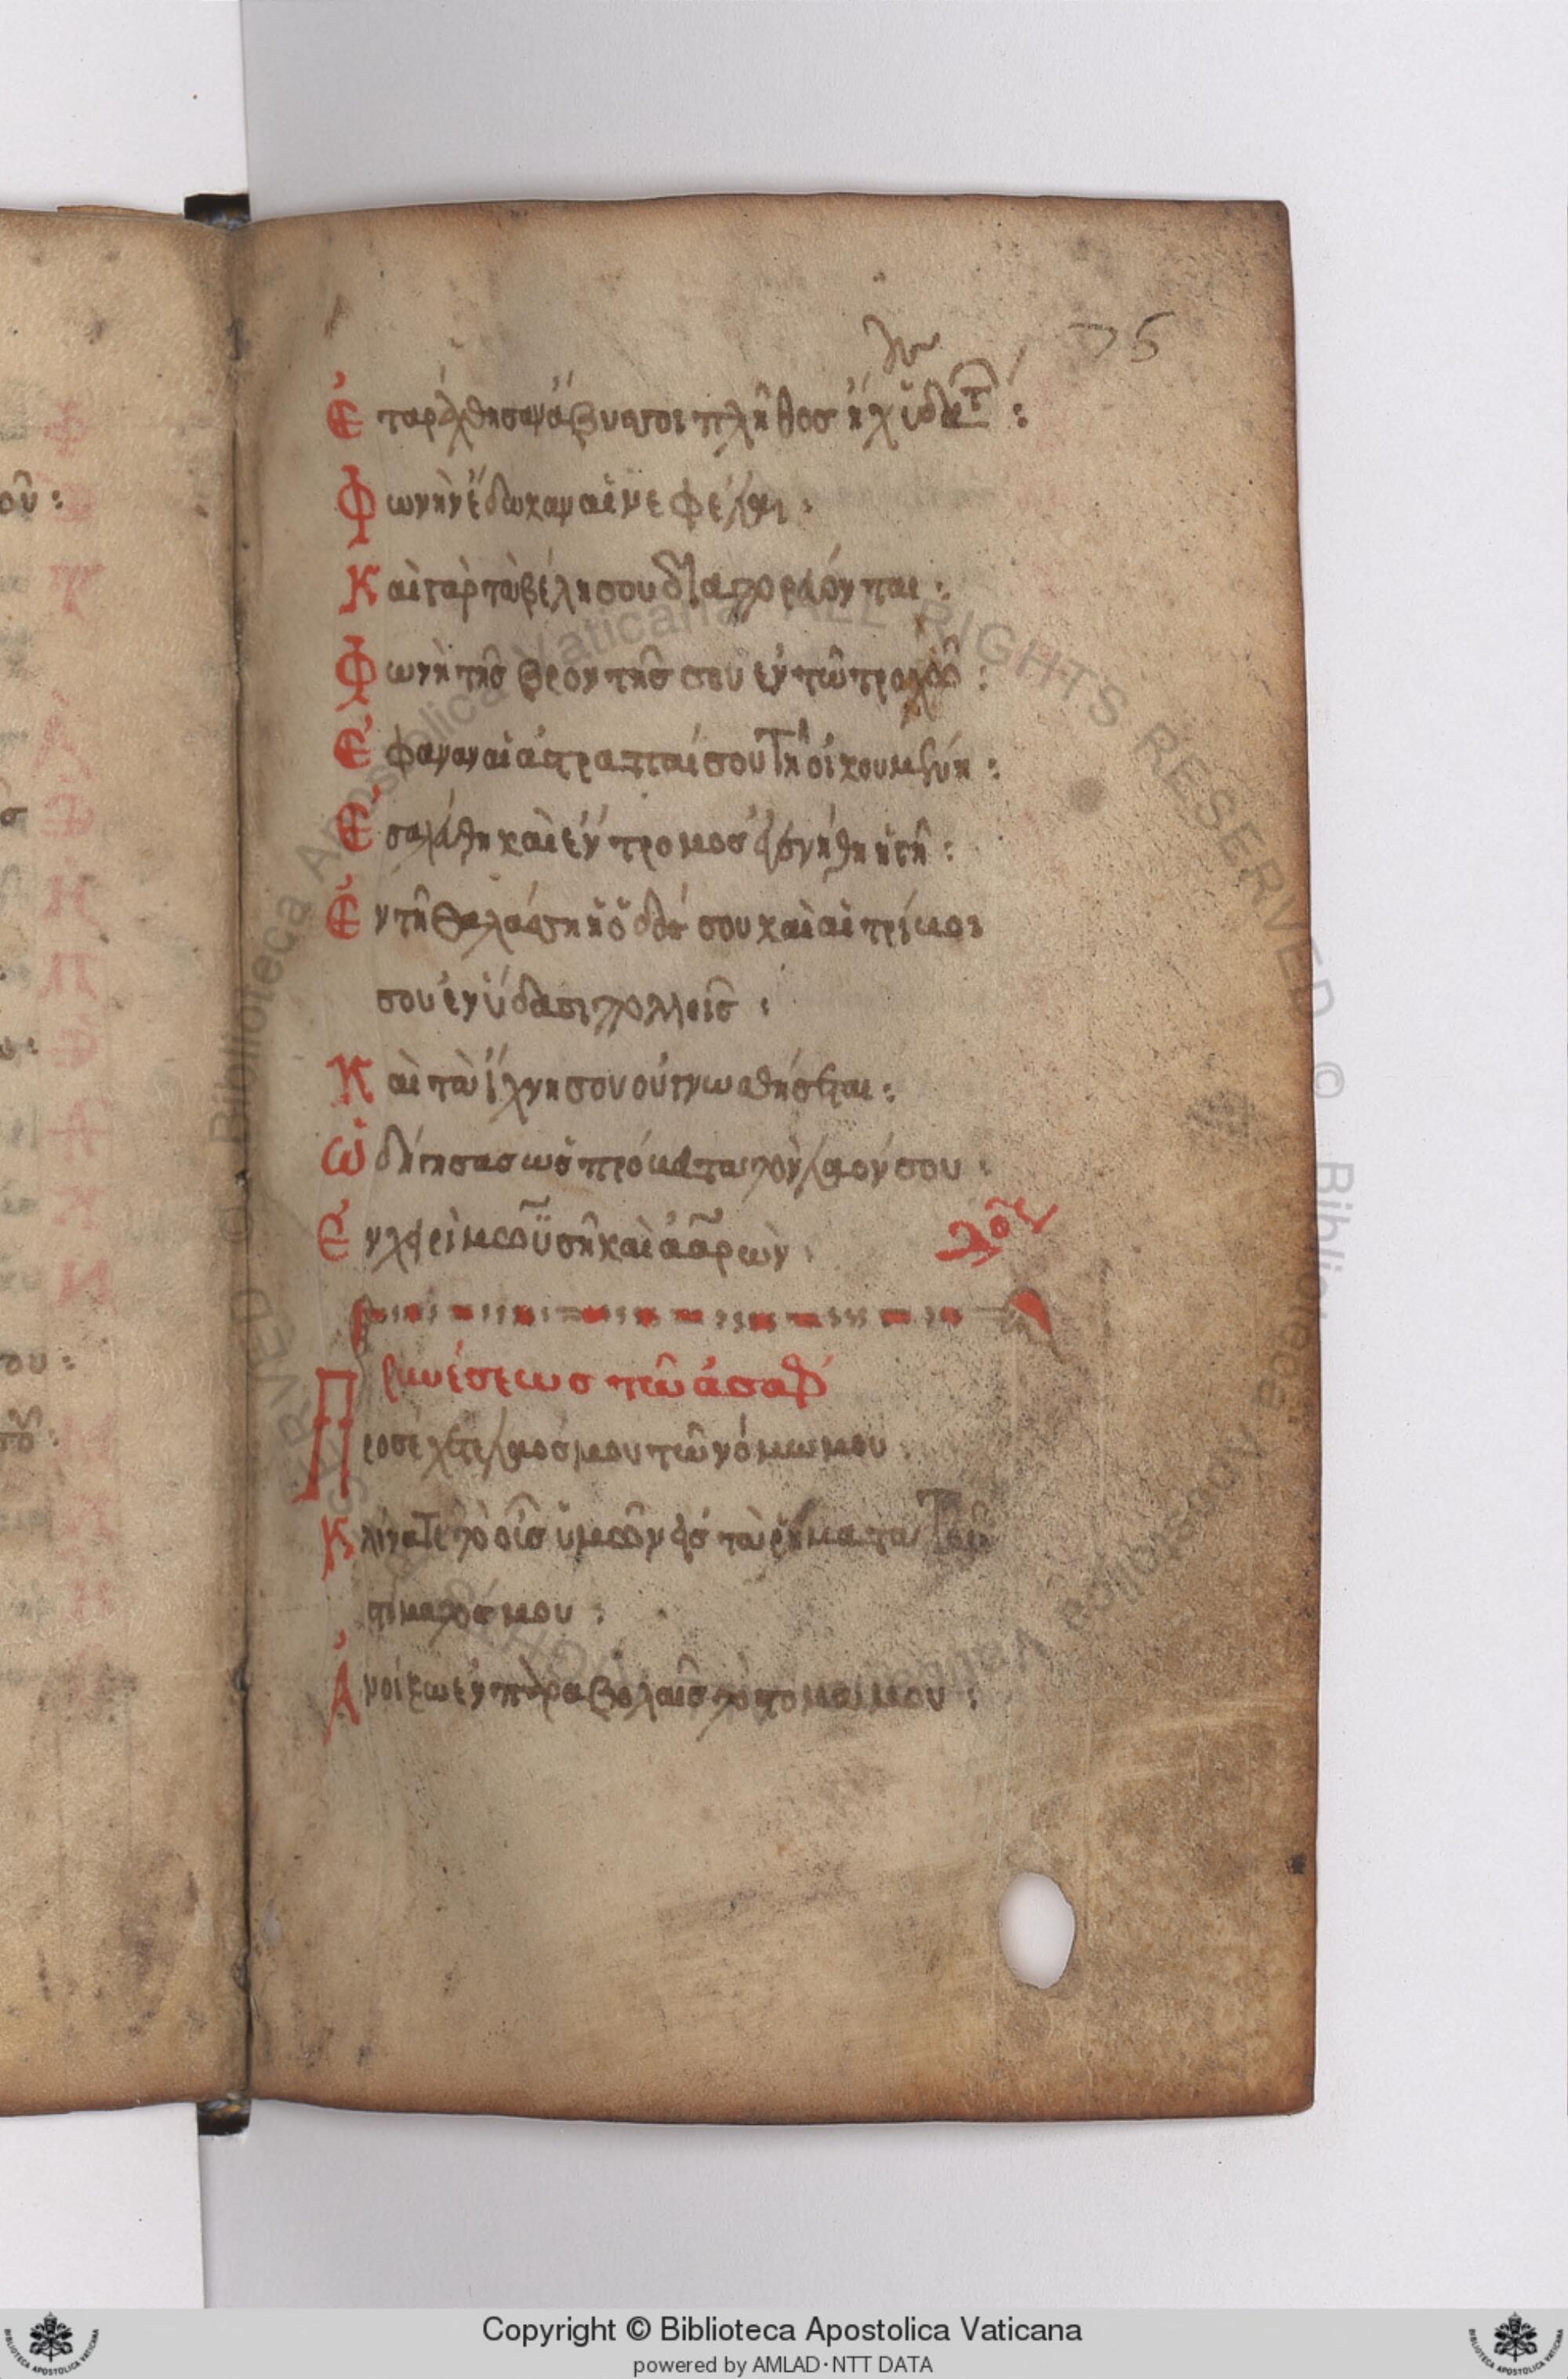 75
Ἐταράχθησαν ἄβυσσοι πλῆθος ἤχους ὑδάτ :
Φωνὴν ἔδωκαν αἱ νεφέλαι :
Καὶ γὰρ τὰ βέλη σου διαπορεύονται :
Φωνὴ τῆς βροντῆς σου ἐν τῶ τροχῶ :
Ἔφαναν αἱ ἀστραπαί σου τῆ οἰκουμένη :
Ἐσαλεύθη καὶ ἔντρομος ἐγενήθη ἡ γῆ :
Ἐν τῆ θαλάσση ἡ ὁδός σου καὶ αἱ τρίβοι
σου ἐν ὕδασι πολλοῖς :
Καὶ τὰ ἴχνη σου οὐ γνωσθήσεται :
Ὡδήγησας ὡς πρόβατα τὸν λαόν σου :
Ἐν χειρὶ μωϋσῆ καὶ ἀαρών :
οζ
συνέσεως τῶ ἀσάφ
Προσέχετε λαός μου τῶ νόμω μου
Κλίνατε τὸ οὖς ὑμῶν εἰς τὰ ῥήματα τοῦ
στόματός μου :
Ἀνοίξω ἐν παραβολαῖς τὸ στόμα μου :
Copyright © Biblioteca Apostolica Vaticana
powered by AMLAD·NTT DATA